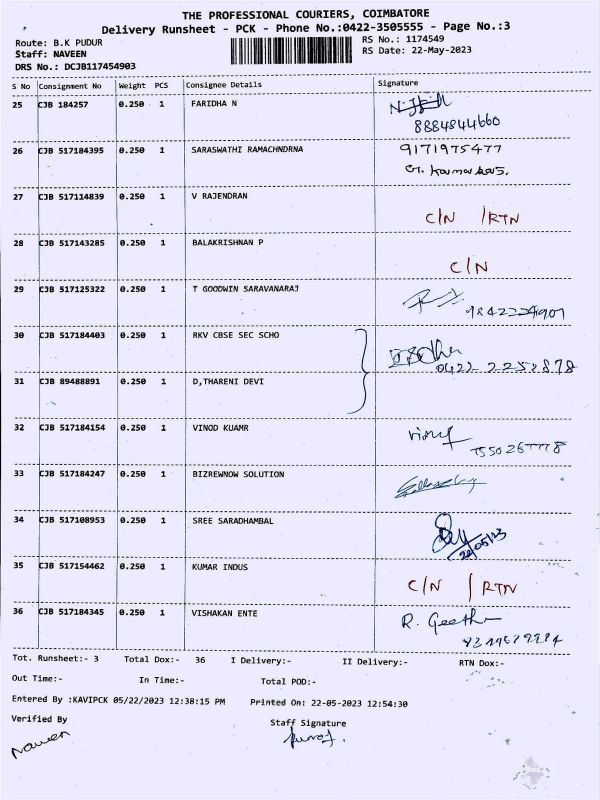 THE PROFESSIONAL COURIERS, COIMBATORE
Delivery Runsheet - PCK - Phone No.:0422-3505555 - Page No.:3
Route: B.K PUDUR
RS No.: 1174549
Staff: NAVEEN
RS Date: 22-May-2023
DRS No.: DCJB117454903
S No Consignment No Weight PCS Consignee Details Signature
25 CJB 184257 0.250 1 FARIDHA N
8884844660
26 CJB 517184395 0.250 1 SARASWATHI RAMACHNDRNA 9171975477
27 CJB 517114839 0.250 1 V RAJENDRAN
C/N /RTN
28 CJB 517143285 0.250 1 BALAKRISHNAN P
C/N
29 CJB 517125322 0.250 1 T GOODWIN SARAVANARAJ
30 CJB 517184403 0.250 1 RKV CBSE SEC SCHO
31 CJB 89488891 0.250 1 D,THARENI DEVI
32 CJB 517184154 0.250 1 VINOD KUAMR
33 CJB 517184247 0.250 1 BIZREWNOW SOLUTION
34 CJB 517108953 0.250 1 SREE SARADHAMBAL
22/05/23
35 CJB 517154462 0.250 1 KUMAR INDUS
C/N / RTN
36 CJB 517184345 0.250 1 VISHAKAN ENTE
R. Geetha
Tot. Runsheet:- 3 Total Dox:- 36 I Delivery:- II Delivery:- RTN Dox:-
Out Time:- In Time:- Total POD:-
Entered By :KAVIPCK 05/22/2023 12:38:15 PM Printed On: 22-05-2023 12:54:30
Verified By Staff Signature
Naveen